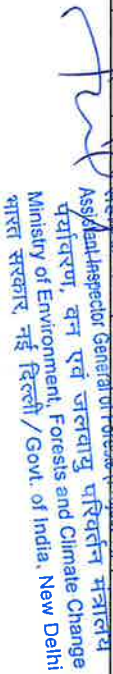 Assistant Inspector General of Forests
पर्यावरण, वन एवं जलवायु परिवर्तन मंत्रालय
Ministry of Environment, Forests and Climate Change
भारत सरकार, नई दिल्ली / Govt. of India, New Delhi